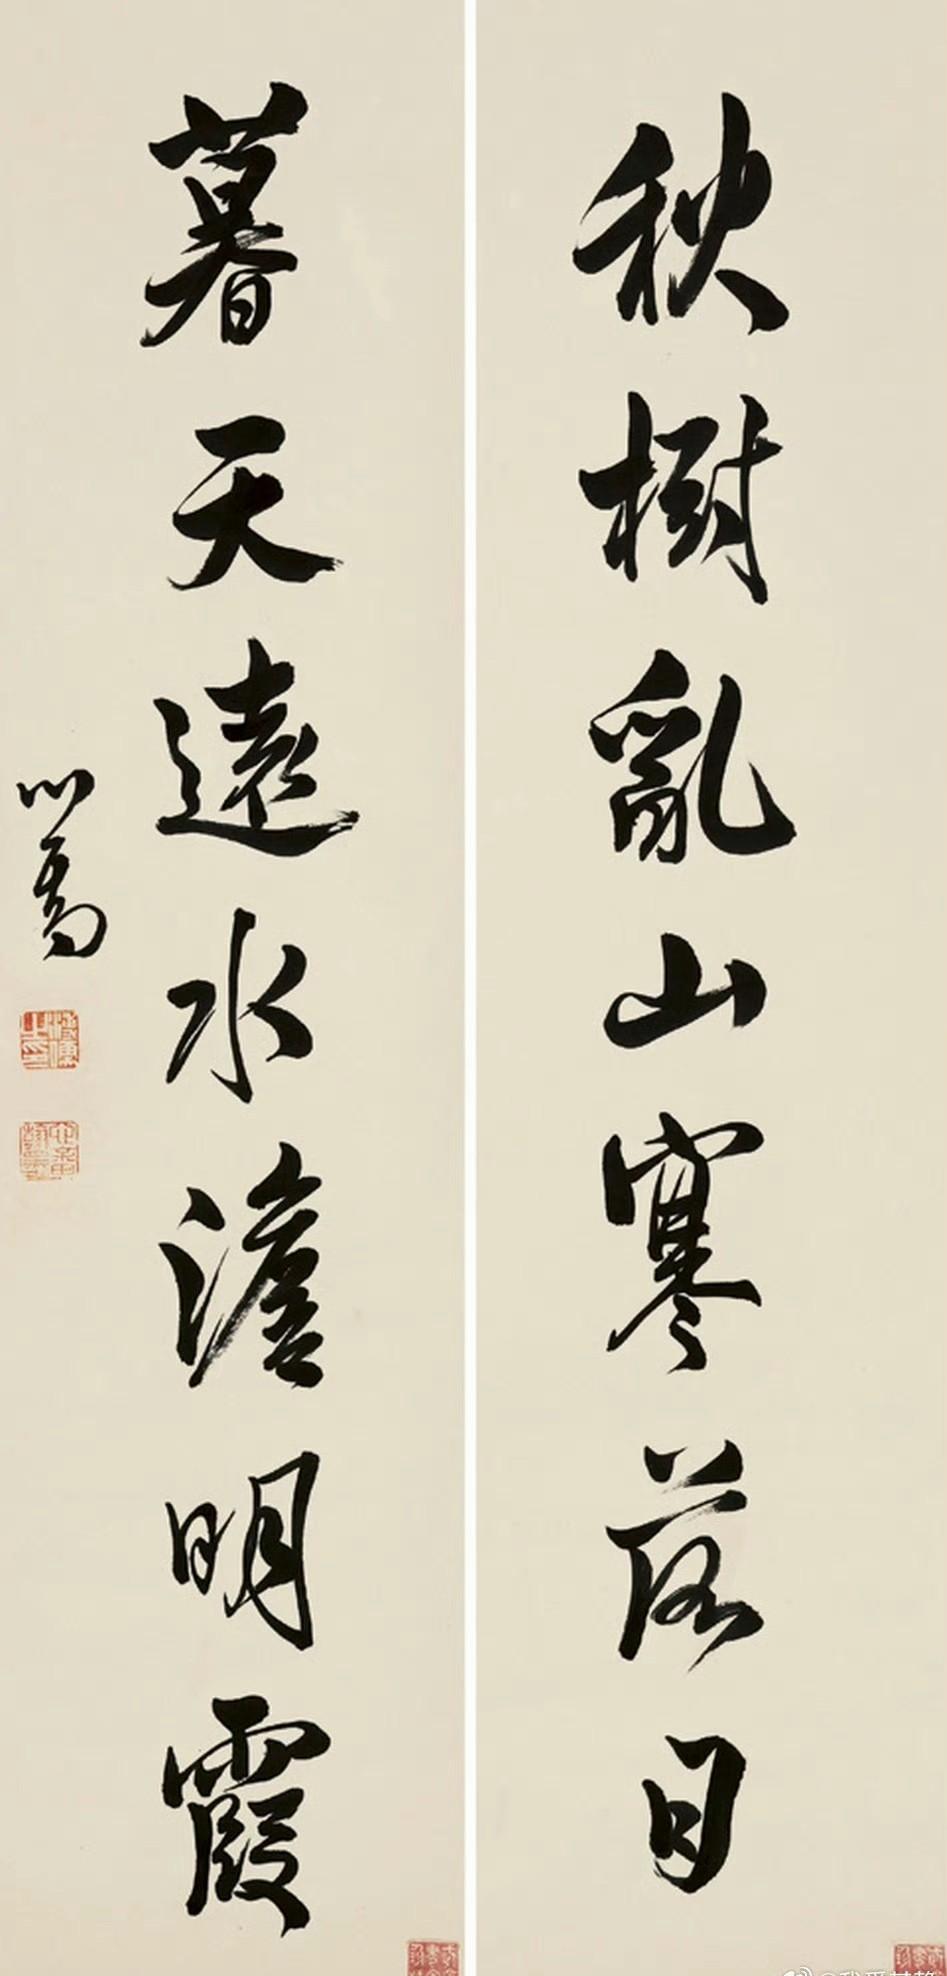 秋樹亂山寒落日
暮天遠水澹明霞
心畬
溥儒之印